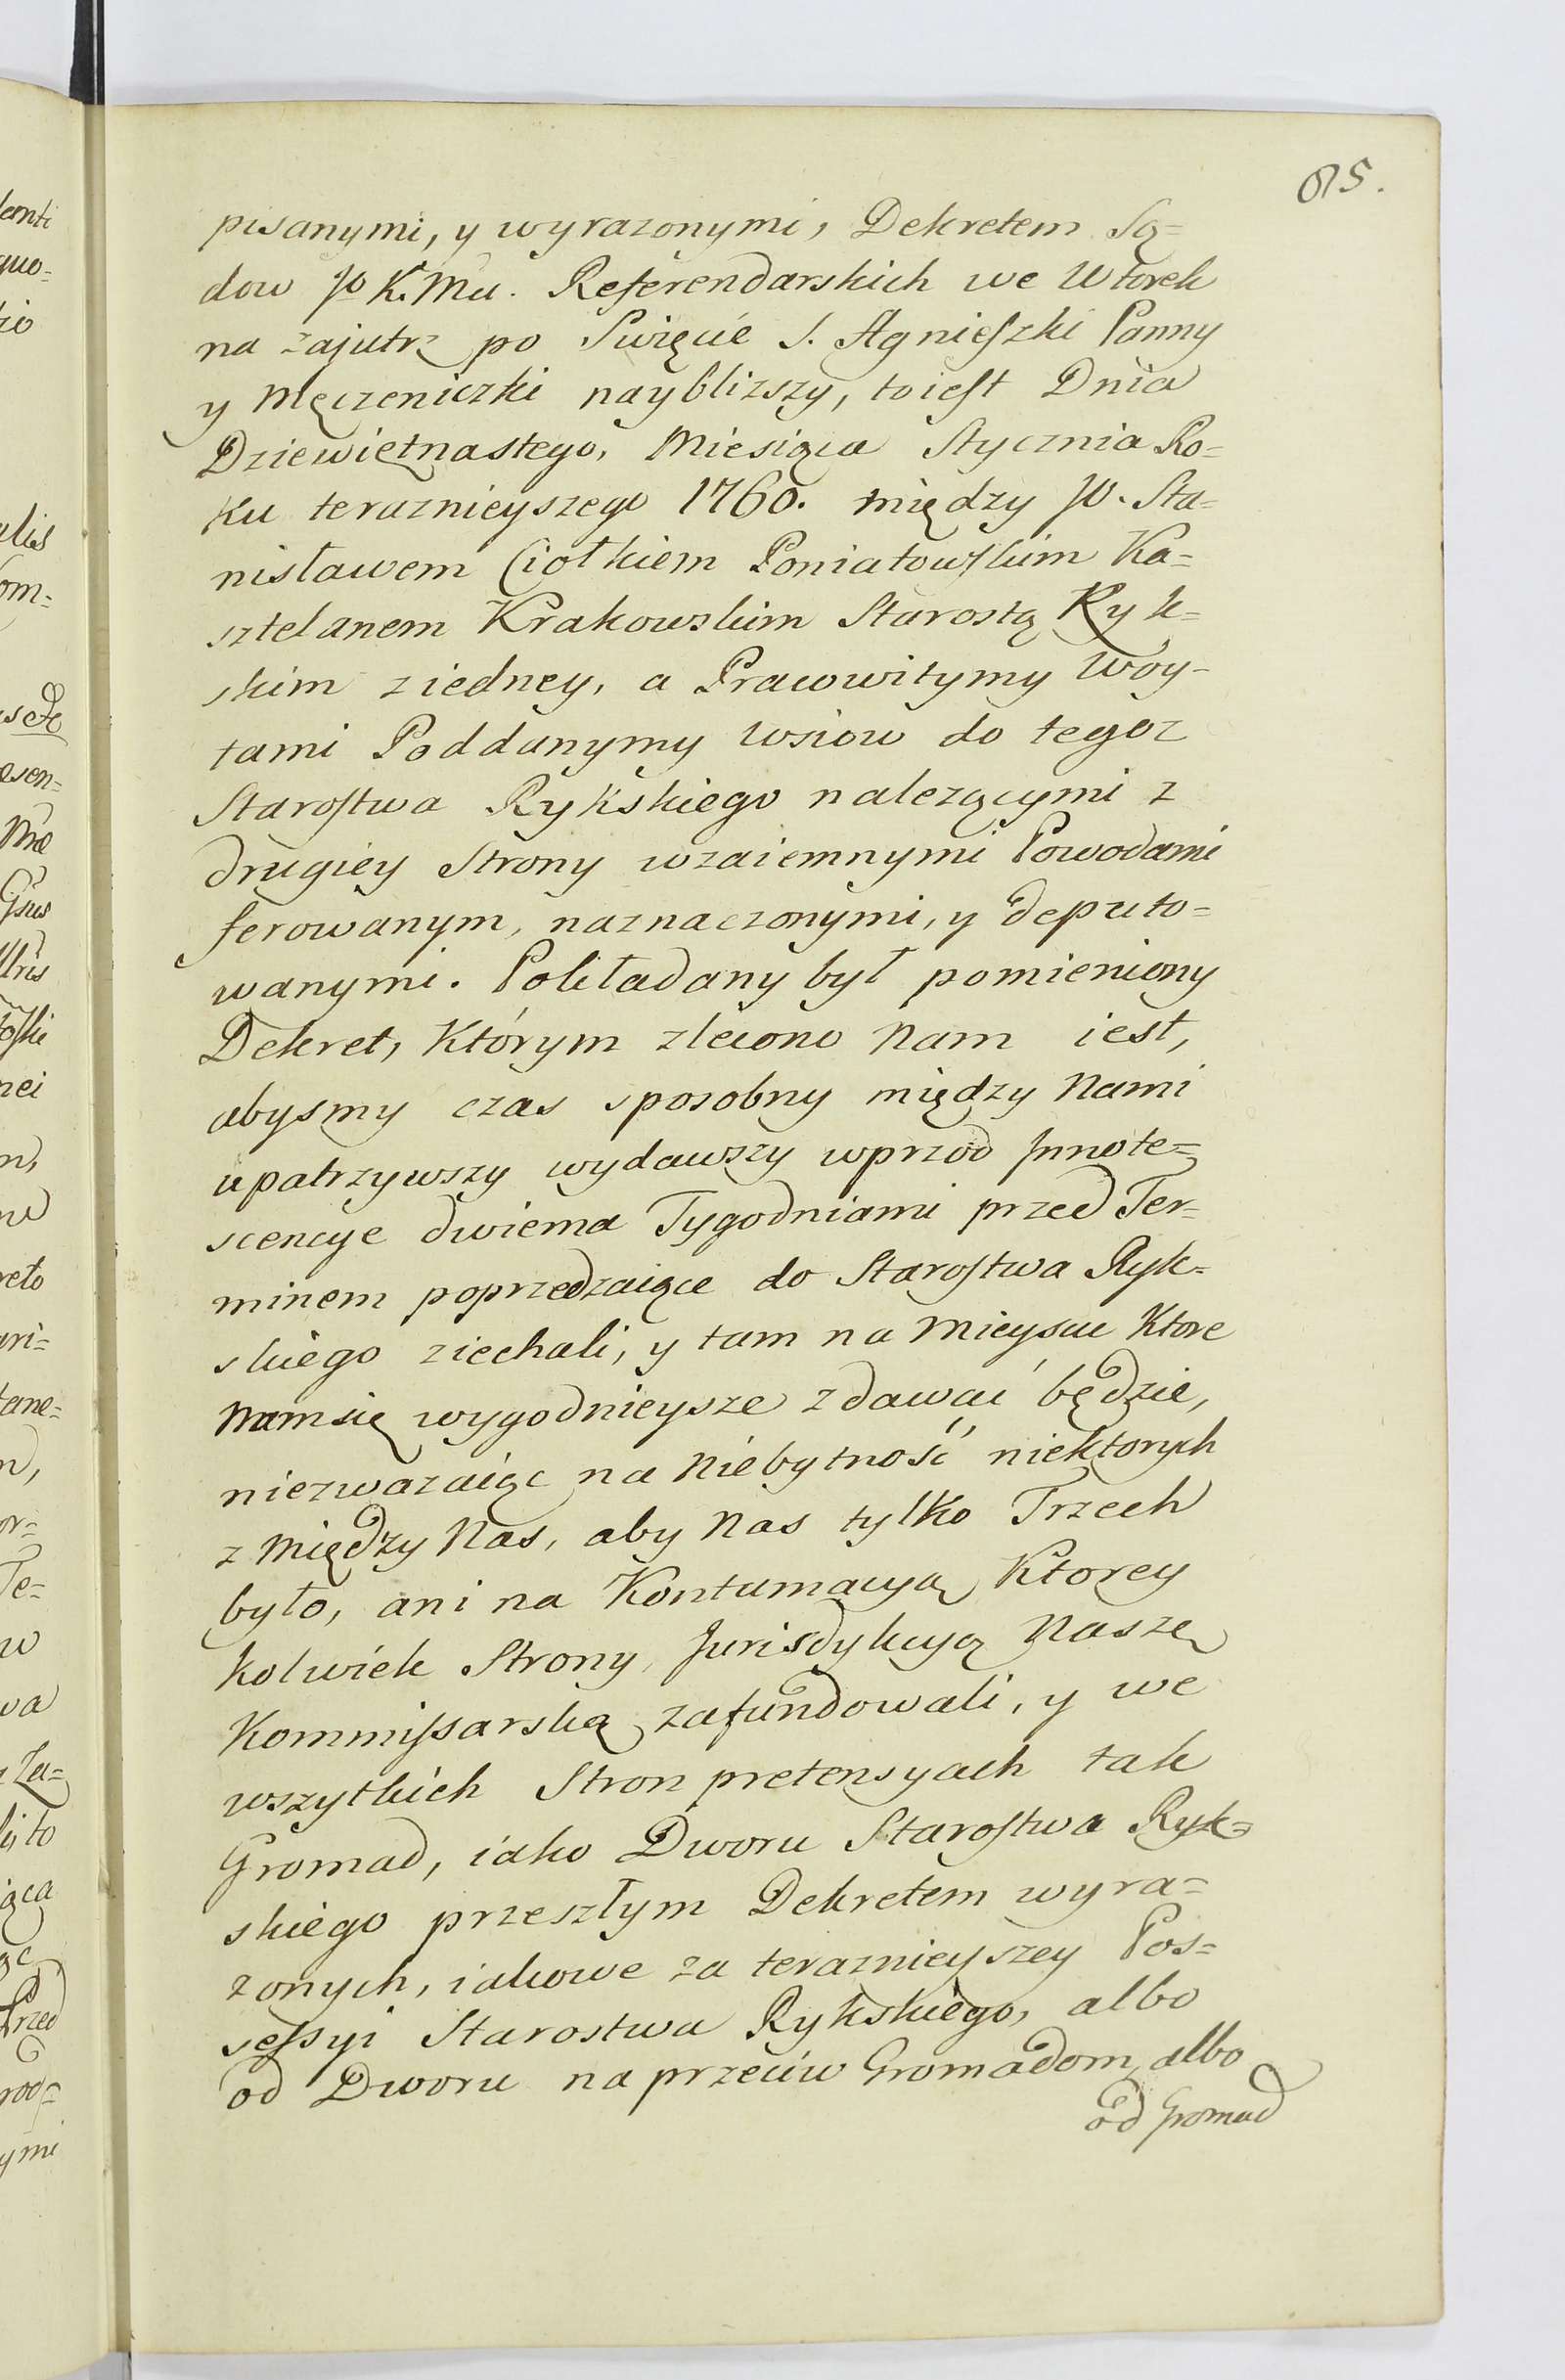 615.
pisanymi, y wyrazonymi, Dekretem Są=
dow Jo K. Mci. Referendarskich we Wtorek
na zajutrz po Swięcie S. Agnieszki Panny
y Męczeniczki nayblizszy, toiest Dnia
Dziewiętnastego, Miesiąca Stycznia Ro=
ku teraznieyszego 1760. między JO. Sta=
nisławem Ciołkiem Poniatowskim Ka=
sztelanem Krakowskim Starostą Ryk=
skim ziedney, a Prawowitymy Woy-
tami Poddanymy wsiow do tegoz
Starostwa Rykskiego nalezącymi z
drugiey Strony wzaiemnymi Powodami
ferowanym, naznaczonymi, y deputo=
wanymi. Pokładany był pomieniony
Dekret, którym zlecono Nam iest,
abysmy czas sposobny między Nami
upatrzywszy wydawszy wprzod Innote=
scencye dwiema Tygodniami przed Ter=
minem poprzedzaiące do Starostwa Ryk=
skiego ziechali, y tam na mieyscu Ktore
Nam się wygodnieysze zdawać będzie,
niezwazaiąc na niebytność niektorych
z między Nas, aby Nas tylko Trzech
było, ani na Kontumacyą Ktorey
kolwiek Strony, Jurisdykcyą Naszę
Kommissarską zafundowali, y we
wszytkich Stron pretensyach tak
Gromad, iako Dworu Starostwa Ryk=
skiego przeszłym Dekretem wyra=
zonych, iakowe za teraznieyszey Pos=
sessyi Starostwa Rykskiego, albo
od Dworu naprzeciw Gromadom, albo
od Gromad
demti
quo=
zio
alis
om=
esen=
Gsus
nei
n,
reto
ari=
tane=
n,
or=
Te=
w
wa
Za=
to
iąca
ąc
przed
rod=
ymi